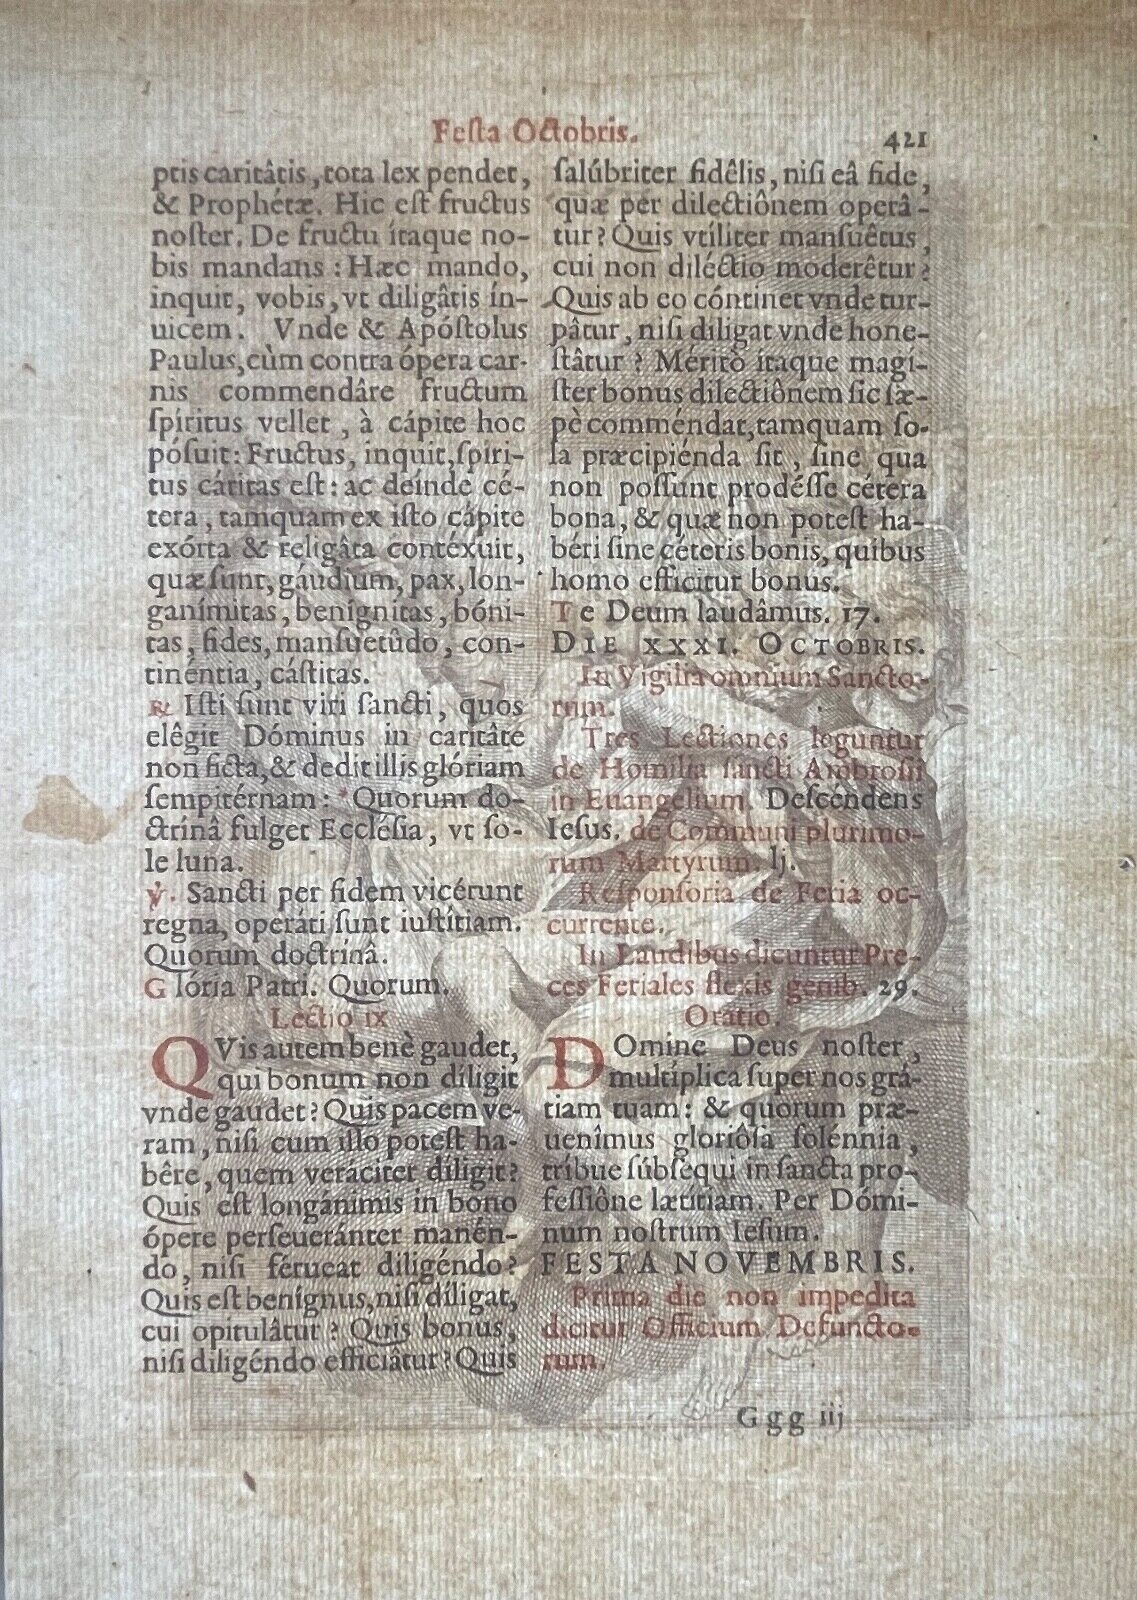 Feſta Octobris.
421
ptis caritâtis, tota lex pendet,
& Prophétæ. Hic eſt fructus
noſter. De fructu ítaque no-
bis mandans : Hæc mando,
inquit, vobis, vt diligâtis ín-
uicem. Vnde & Apóſtolus
Paulus, cùm contra ópera car-
nis commendâre fructum
ſpíritus vellet, à cápite hoc
póſuit: Fructus, inquit, ſpíri-
tus cáritas eſt: ac deínde cé-
tera, tamquam ex iſto cápite
exórta & religâta contéxuit,
quæ ſunt, gáudium, pax, lon-
ganímitas, benígnitas, bóni-
tas, fides, manſuetûdo, con-
tinéntia, cáſtitas.
℟. Iſti ſunt viri ſancti, quos
elêgit Dóminus in caritâte
non ficta, & dedit illis glóriam
ſempitérnam: * Quorum do-
ctrinâ fulget Eccléſia, vt ſo-
le luna.
℣. Sancti per fidem vicérunt
regna, operáti ſunt iuſtítiam.
Quorum doctrinâ.
Glória Patri. Quorum.
Lectio ix
QVis autem benè gaudet,
qui bonum non diligit
vnde gaudet? Quis pacem ve-
ram, niſi cum illo poteſt ha-
bêre, quem veráciter díligit?
Quis eſt longánimis in bono
ópere perſeueránter manén-
do, niſi férueat diligéndo?
Quis eſt benígnus, niſi díligat,
cui opitulâtur? Quis bonus,
niſi diligéndo efficiâtur? Quis
ſalúbriter fidêlis, niſi eâ fide,
quæ per dilectiônem operâ-
tur? Quis vtíliter manſuêtus,
cui non diléctio moderêtur?
Quis ab eo cóntinet vnde tur-
pâtur, niſi díligat vnde hone-
ſtâtur? Méritò ítaque magi-
ſter bonus dilectiônem ſic ſæ-
pè comméndat, tamquam ſo-
la præcipiénda ſit, ſine qua
non poſſunt prodéſſe cétera
bona, & quæ non poteſt ha-
béri ſine céteris bonis, quibus
homo efficitur bonus.
Te Deum laudâmus. 17.
DIE XXXI. OCTOBRIS.
In Vigilia omnium Sancto-
rum.
Tres Lectiones leguntur
de Homilia ſancti Ambroſii
in Euangelium. Deſcéndens
Ieſus. de Communi plurimo-
rum Martyrum. lj.
Reſponſoria de Feria oc-
currente.
In Laudibus dicuntur Pre-
ces Feriales flexis genib. 29.
Oratio.
DOmine Deus noſter,
multíplica ſuper nos grá-
tiam tuam: & quorum præ-
uenîmus gloriôſa ſolénnia,
tríbue ſúbſequi in ſancta pro-
feſſiône lætítiam. Per Dómi-
num noſtrum Ieſum.
FESTA NOVEMBRIS.
Prima die non impedita
dicitur Officium Defuncto-
rum.
Ggg iij